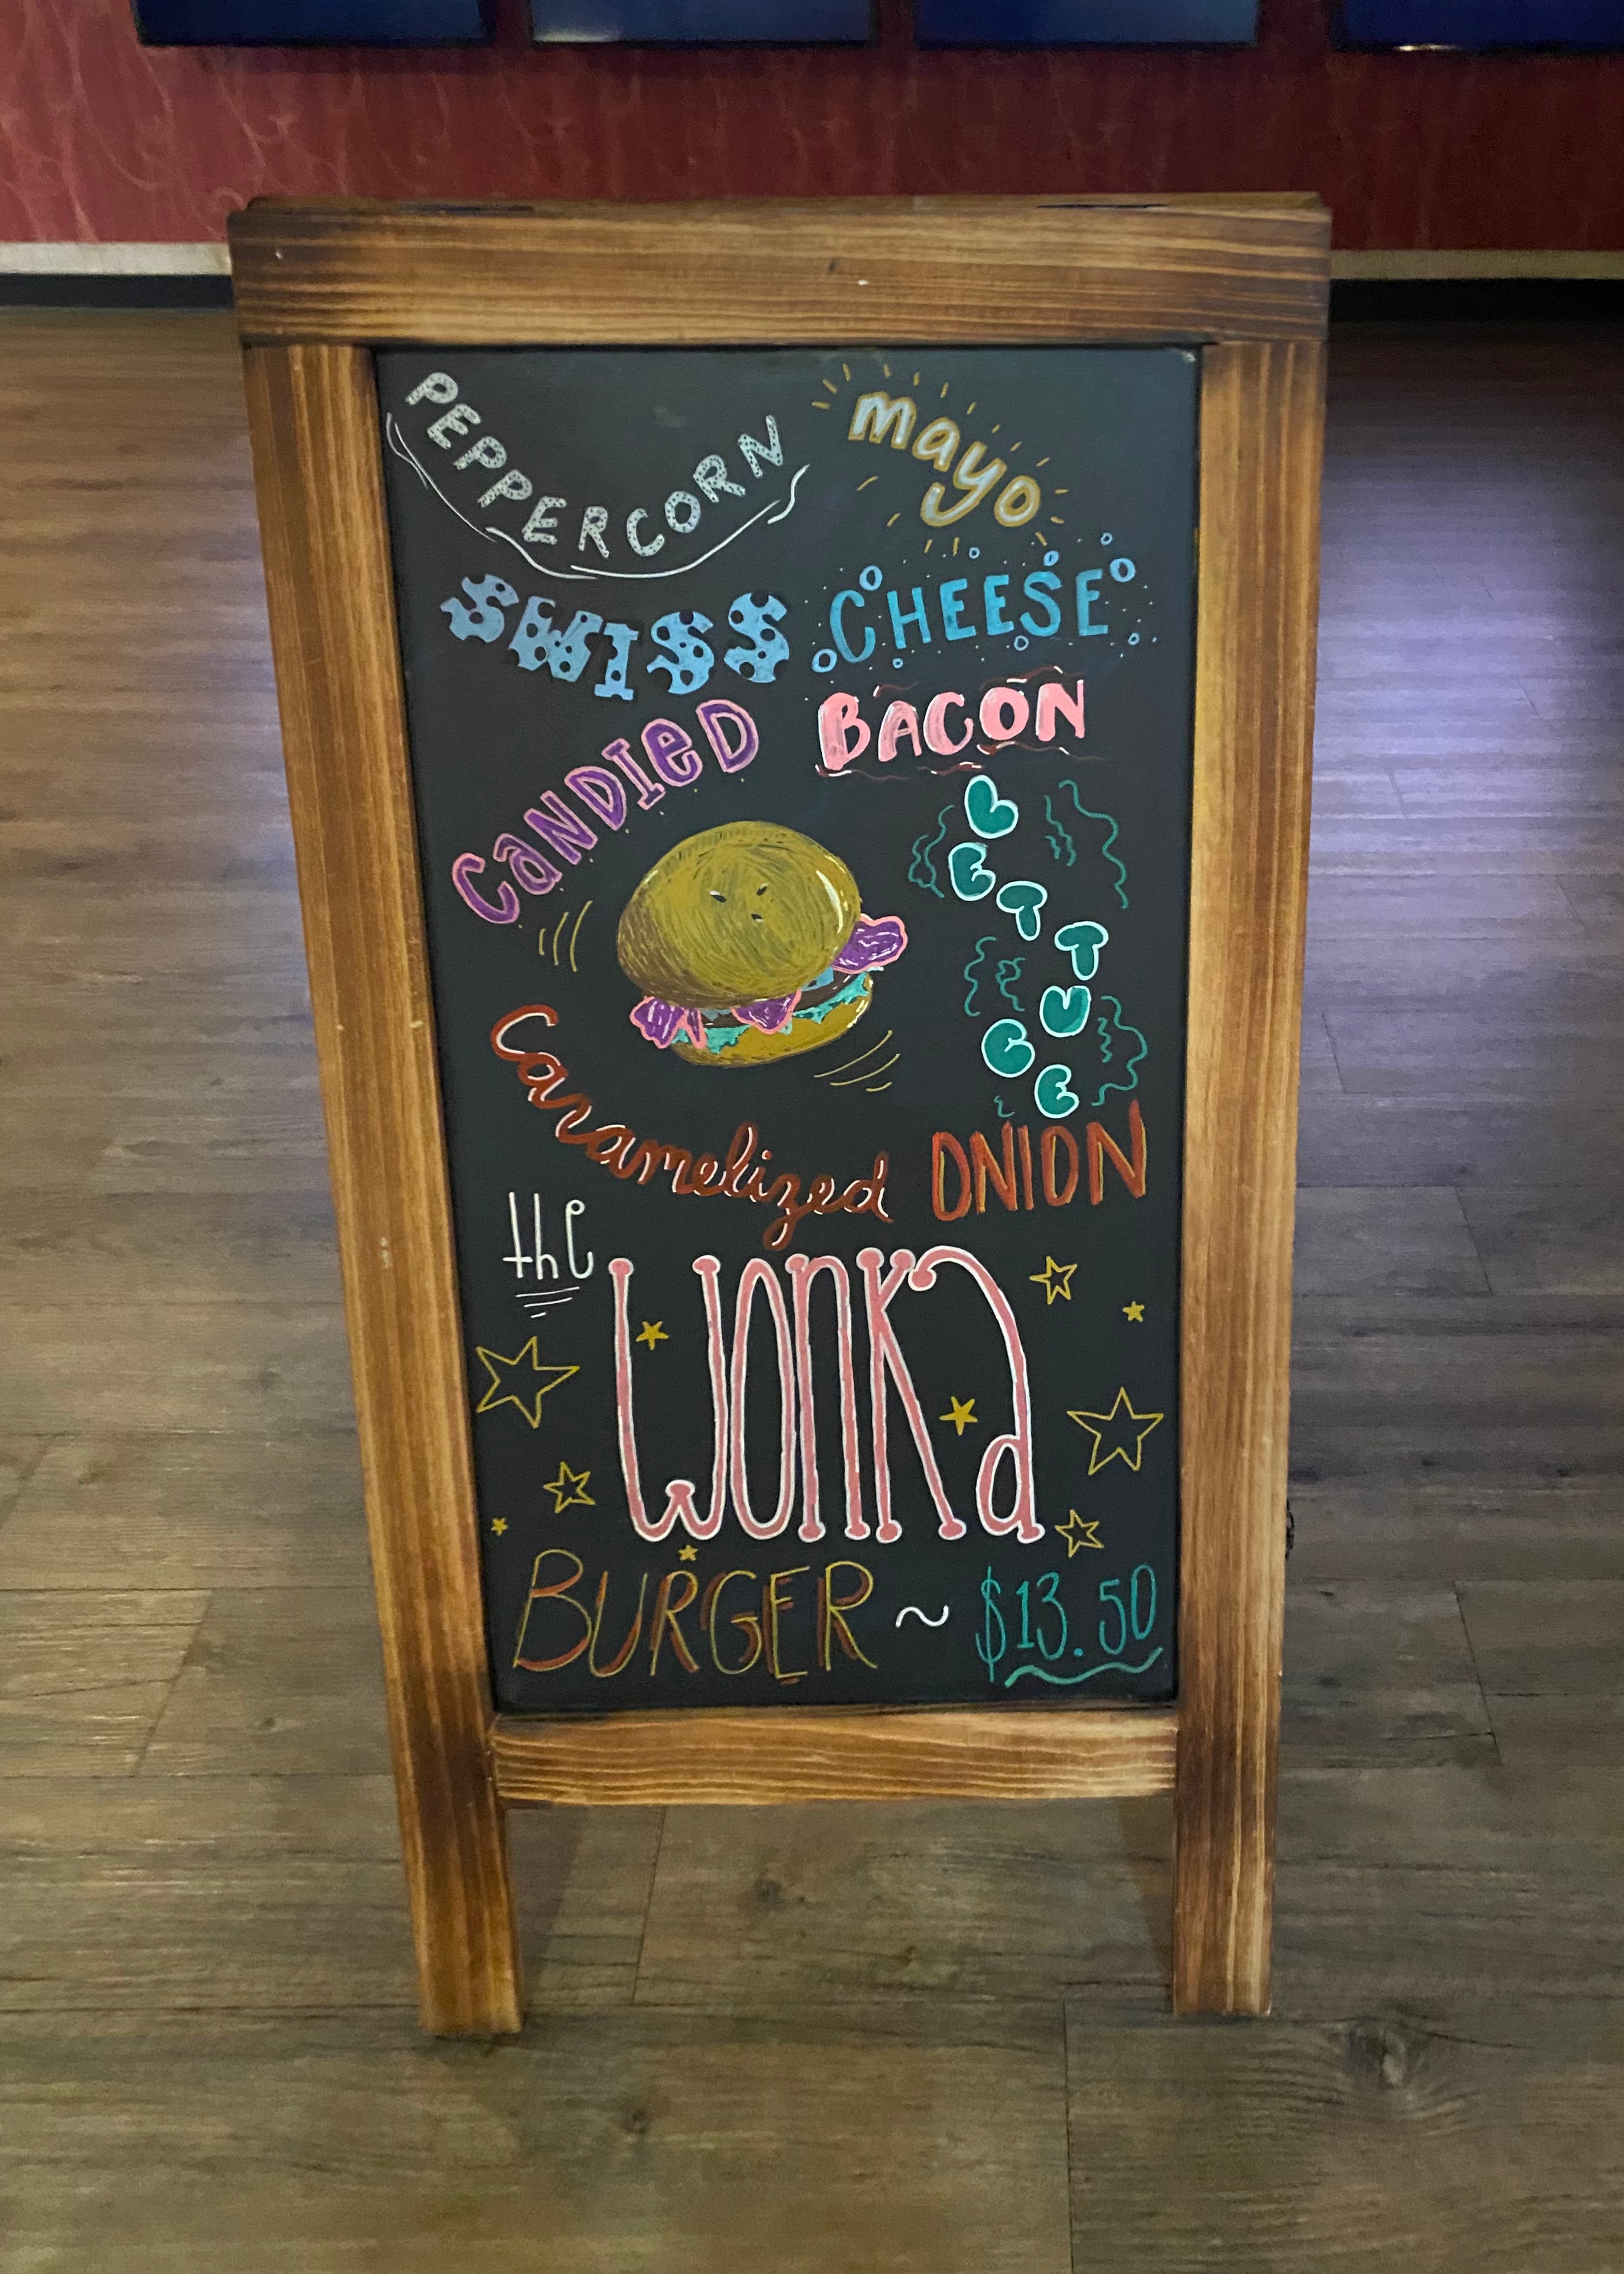 PEPPERCORN mayo
SWISS CHEESE
CANDIED BACON
LETTUCE
Caramelized ONION
the
WONKa
BURGER ~ $13.50